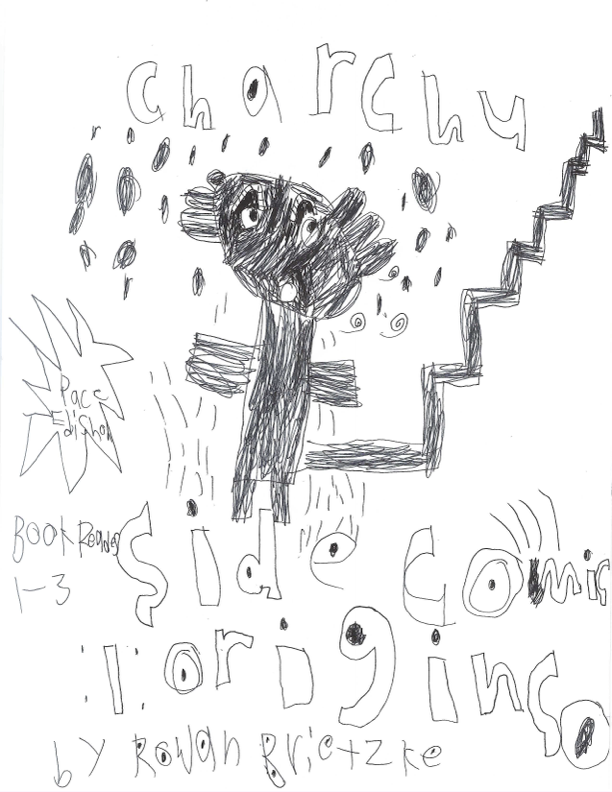 charchy
Pace
Edishon
Book Reader
1-3
Side Comic
:1: origins
by Rowan Brietzke